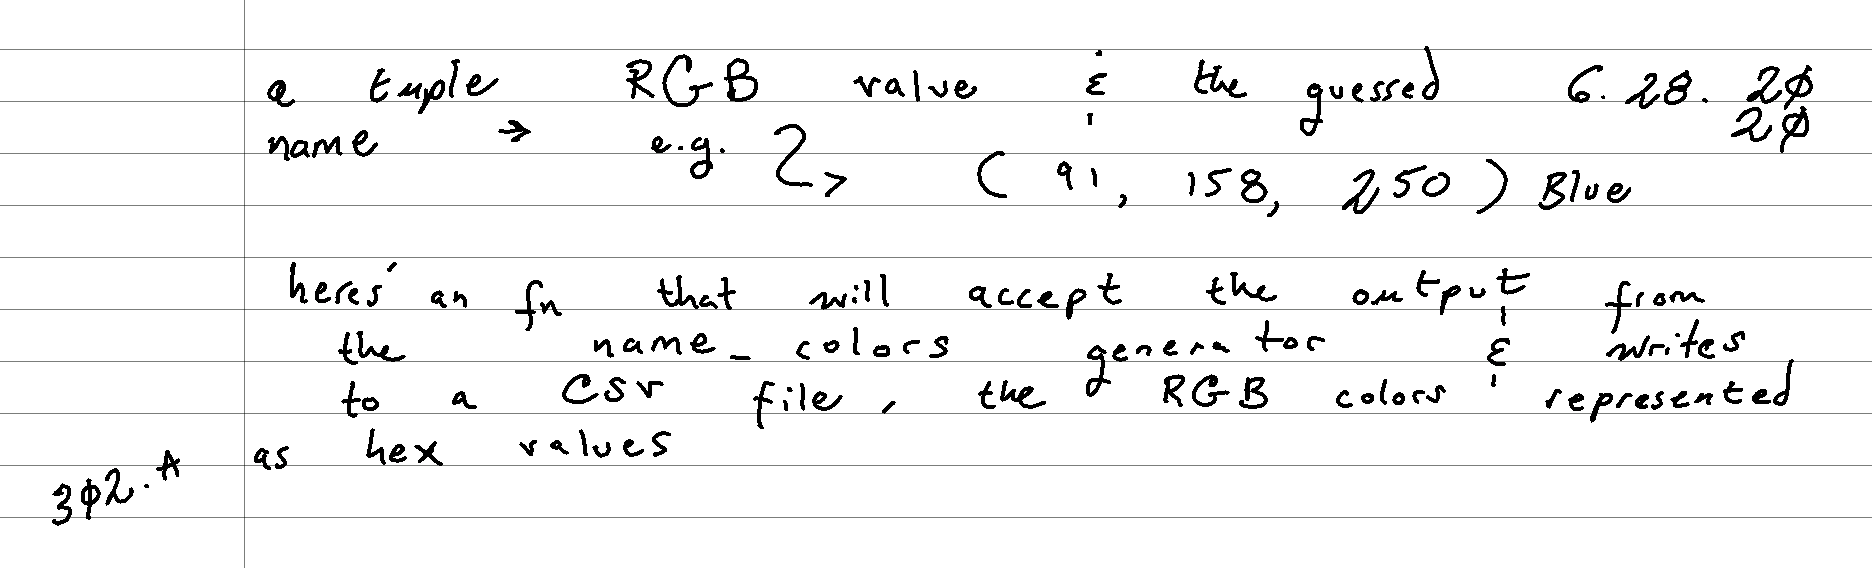 a tuple RGB value & the guessed 6.28.2ø
2ø
name → e.g. (91, 158, 250) Blue
heres' an fn that will accept the output from
the name_colors generator & writes
to a CSV file, the RGB colors represented
as hex values
3ø2.A